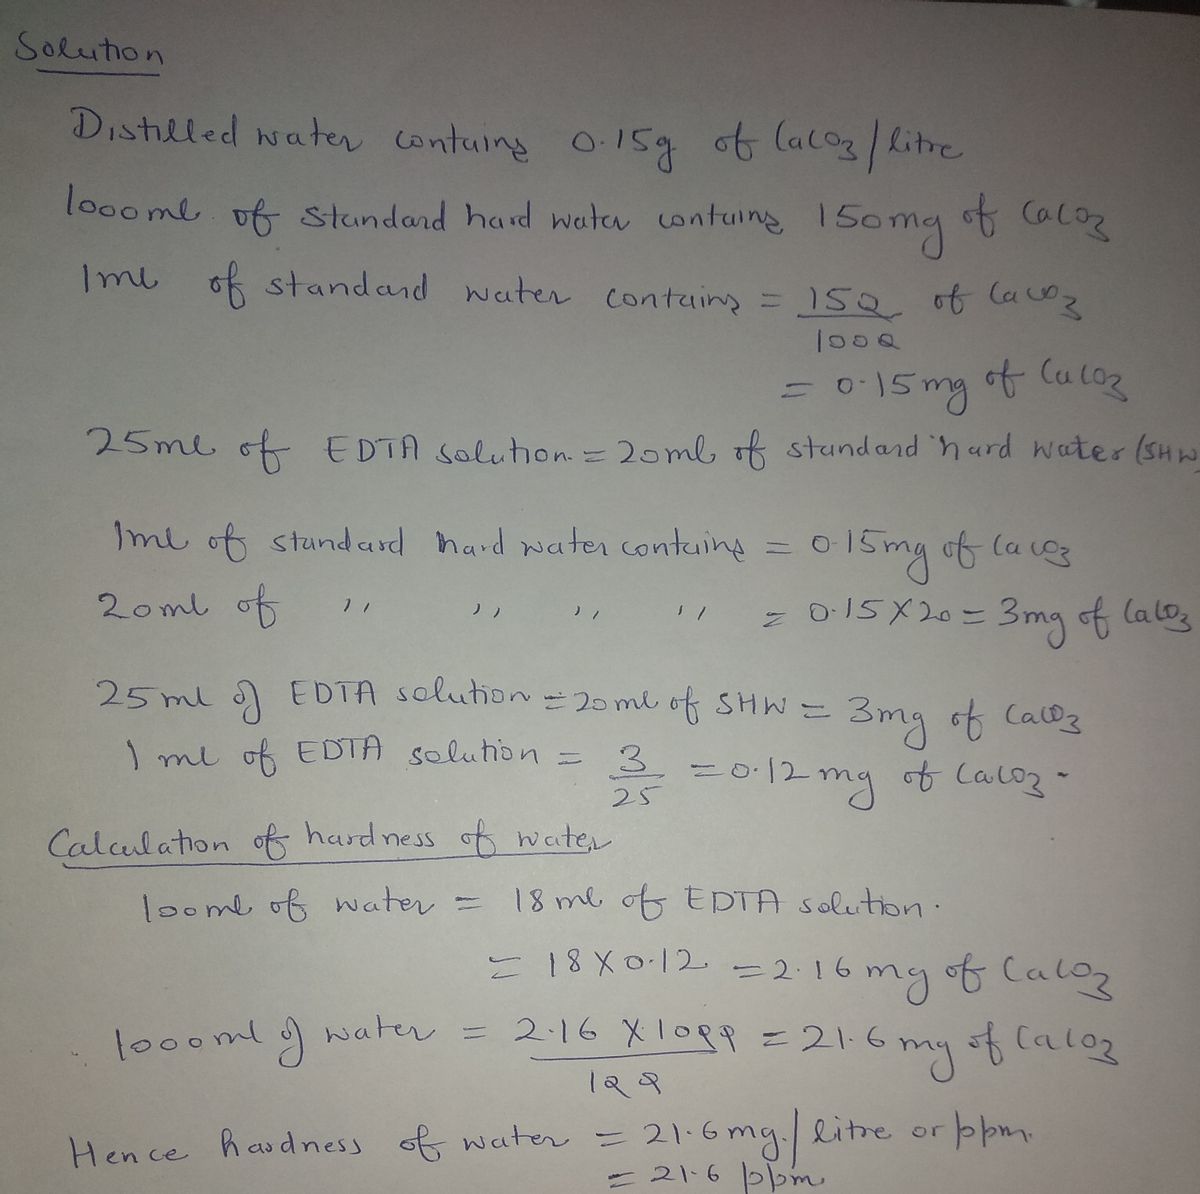 Solution
Distilled water contains 0.15g of CaCO3/litre
1000ml. of standard hard water contains 150mg of CaCO3
1ml of standard water contains = 150 of CaCO3
1000
= 0.15mg of CaCO3
25ml of EDTA solution = 20ml of standard hard water (SHW
1ml of standard hard water contains = 0.15mg of CaCO3
20ml of ,, ,, ,, ,, = 0.15 X 20 = 3mg of CaCO3
25ml of EDTA solution = 20ml of SHW = 3mg of CaCO3
1 ml of EDTA solution = 3 = 0.12 mg of CaCO3 -
25
Calculation of hardness of water
100ml of water = 18 ml of EDTA solution.
= 18 X 0.12 = 2.16 mg of CaCO3
1000ml of water = 2.16 X 1000 = 21.6 mg of CaCO3
100
Hence hardness of water = 21.6mg./litre or ppm.
= 21.6 ppm